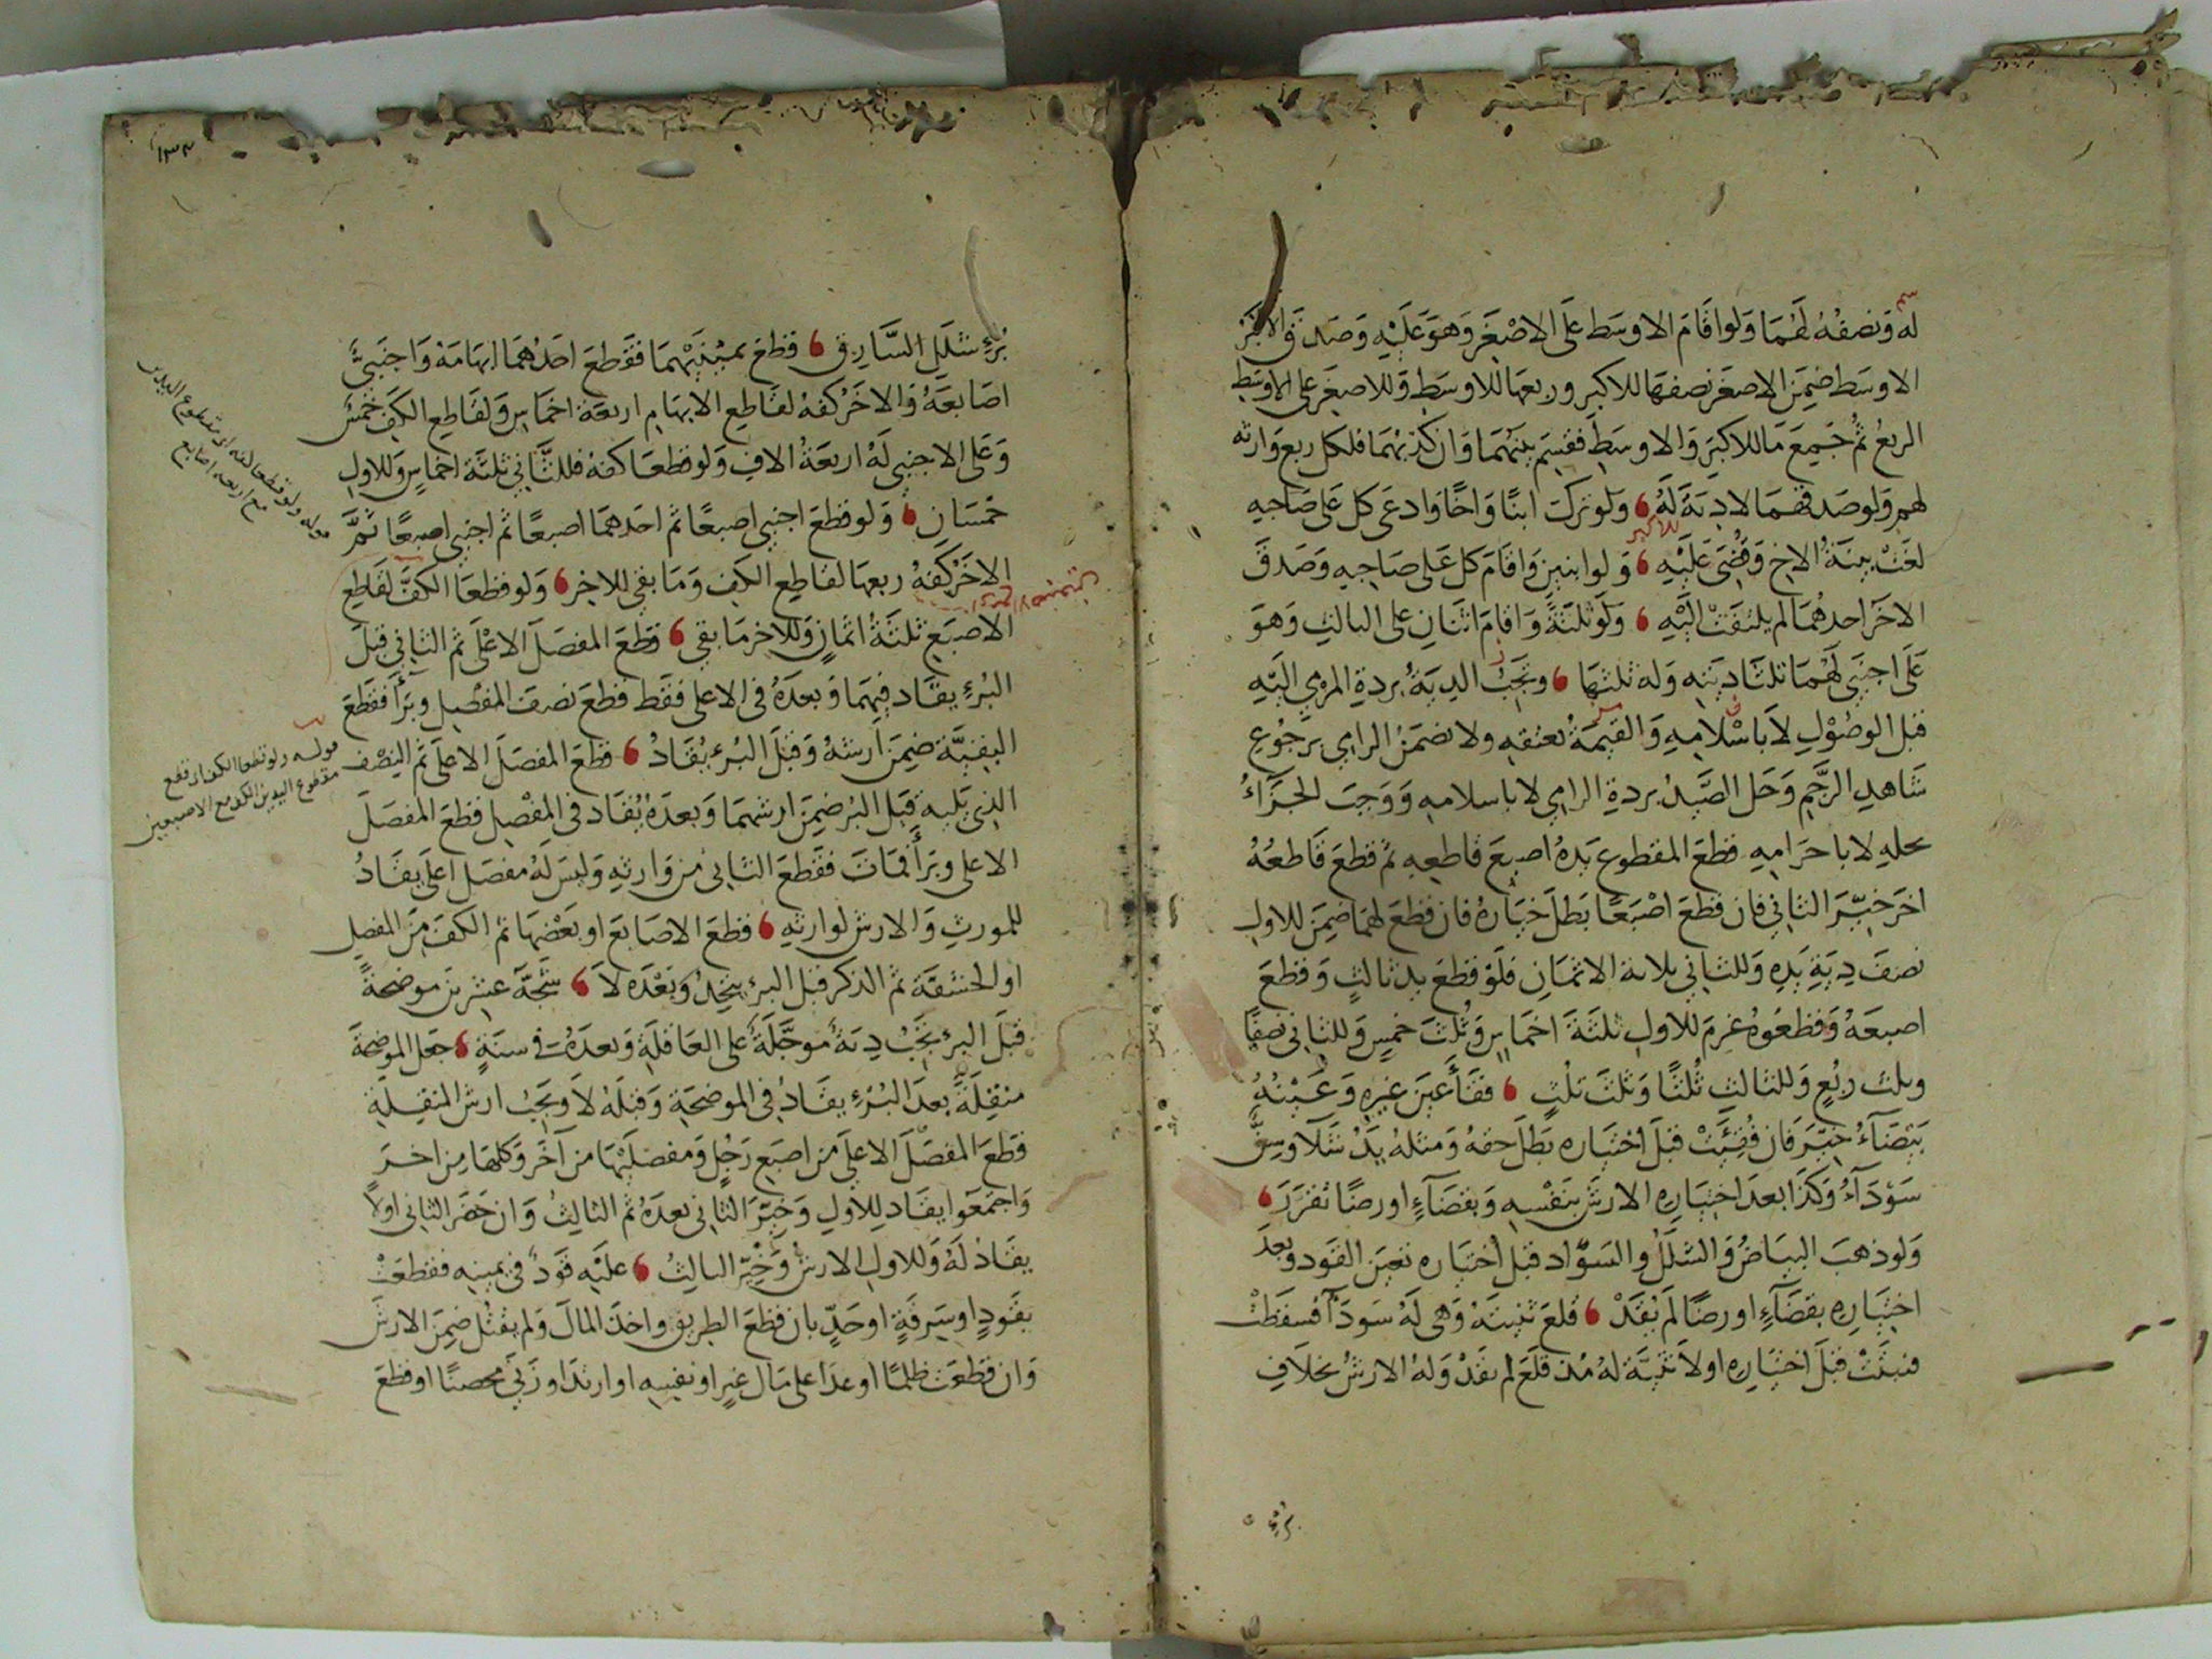 له وَنصفُهُ لهُمَا وَلو اقَامَ الاوسَط علَى الاصْغَر وَهوَ عَلَيْهِ وَصَدقَ الاكبَرُ
الاوسَط ضمِنَ الاصغَر نصفهَا للاكبرِ وربعهَا للاوسَطِ وَللاصغَر على الاوسَط
الربعُ ثمُ جَميعَ مَا للاكبَرِ وَالاوسَطِ فقسِمَ بينَهُمَا وَان كذبهُمَا فلكل ربع وَارثه
لهم وَلو صَدقهُمَا لادِيَةَ لَهُ وَلو تركَ ابنًا وَاخًا وَادعَى كل عَلى صَاحبِهِ
لغَتْ بينَةُ الاخِ وَقُضِىَ عَلَيْهِ وَلو ابنين وَاقَامَ كل عَلى صَاحِبهِ وَصَدقَ
الاخَرَ احدهُمَا لم يلتفتْ الَيْهِ وَلوْ ثلثَةً وَاقَامَ اثنَانِ على الثالثِ وَهوَ
عَلى اجنَبِي لَهُمَا ثلثَا ديَتهِ وَله ثلثهَا وتجَبُ الديَةُ بردةِ المرْمِي الَيْهِ
قبل الوصُوْلِ لاَ باسْلامِهِ وَالقيمَةُ بعتقهِ ولا تضمَنُ الرامِي برجُوعِ
شَاهدِ الرَّجمِ وَحَل الصَّيدُ بردةِ الرامِي لا باسلامهِ وَوَجبَ الجزَاءُ
بحلهِ لا باحرَامِهِ قطعَ المقطوع يَدهُ اصبعَ قَاطعِهِ ثم قطعَ قَاطعُهُ
اخرَ خيّرَ الثانِي فان قطعَ اصْبعًا بَطلَ خيَارهُ فان قطعَ لهمَا ضمِنَ للاولِ
نصفَ دِيَةِ يَدِهِ وَللثانِي ثلاثة الاثمَانِ فَلوْ قطعَ يد ثالثٍ وَقطعَ
اصبعَهُ وَقطعُوهُ غرِمَ للاولِ ثلثَةَ اخمَاسٍ وَثُلثَ خمسٍ وَللثانِى نصفًا
وثلث ربُعٍ وَللثالثِ ثُلثًا وَثلثَ ثلُثٍ ففَقَأَ عَينَ غيرِهِ وَعَيْنُهُ
بَيْضَآءُ خيّرَ فان فُقِئَتْ قبلَ اختيَاره بَطلَ حقهُ وَمثلهُ يَدٌ شَلَّا وسِنٌّ
سَوْدَآءُ وَكذا بعدَ اختيَارِهِ الارشَ بنَفْسِهِ وَبقضَآءٍ او رضًا تقرّرَ
وَلو ذهبَ البيَاضُ وَالشللُ والسوَّاد قبل اختيَاره تعيَّن القوَد وبعدَ
اختيَارِهِ بقضَآءٍ او رضًا لَم يُقَدْ قلعَ ثنيتَهُ وَهى لَهُ سَودَآ فسقَطتْ
فنبتَتْ قبلَ اختيَارِهِ اولاَ ثنيَّة لهُ مُذ قلعَ لم يقَدْ وَلهُ الارشُ بخلاَفِ
برء
١٣٣
بُرْءِ شللِ السَّارِقِ قطعَ يمينَيْهِمَا فقَطعَ احَدُهُمَا ابهَامَهُ وَاجنَبِىٌّ
اصَابعَهُ وَالاخَرُ كفهُ لقَاطعِ الابهَامِ اربعَة اخمَاسٍ وَلقَاطعِ الكفِ خمُسٌ
وَعَلى الاجنبِى لَهُ اربَعَةُ الافٍ وَلو قطعَا كفهُ فللثَّانِي ثلثَة اخمَاسٍ وَللاولِ
خمُسَانِ وَلو قطعَ اجنبِى اصبعًا ثم احَدهمَا اصبعًا ثم اجنبى اصبعًا ثمَّ
الاخَرُ كَفهُ ربعهَا لقَاطعِ الكفِ وَمَا بقِى للاخرِ وَلو قطعَا الكفَّ لقَاطعِ
الاصبَعِ ثلثَةُ اثمَانٍ وَللاخرِ مَا بقِى قطَعَ المفصَلَ الاعْلَى ثم الثانِى قبلَ
البُرْءِ يقَاد فيهِمَا وَبعدَهُ فى الاعلى فقَط قطعَ نصفَ المفْصِلِ وبَرَأَ فقَطعَ
البقيَّة ضمِنَ ارشهُ وَقبلَ البُرْءِ يُقَادُ قطعَ المفصَلَ الاعلَى ثم النِصْف
الذِى يَليهِ قَبل البُرءِ ضمِنَ ارشهمَا وَبعدَهُ يُقَاد فى المفْصِلِ قطعَ المفصَلَ
الاعلى وبَرَأَ فمَاتَ فقَطعَ الثانى من وَارثهِ وَليسَ لَهُ مفصَل اعلَى يقَادُ
للمورثِ وَالارش لوارثهِ قطعَ الاصَابعَ او بَعْضهَا ثم الكفَّ منَ المفصلِ
او الحشفَة ثم الذكرَ قبل البرءِ يتحدُ وَبعْدَه لاَ شَجَّهُ عشرينَ موضحَةً
قبلَ البرءِ تجَبُ ديَةُ مُوجَّلَةً عَلى العَاقلَةِ وَبعدَهُ فى سنَةٍ جعَل الموضحَة
منقلَةً بعدَ البُرءِ يقَادُ فى الموضحَةِ وَقبلَهُ لاَ وَيجَبُ ارش المنقلَةِ
قطعَ المفصَلَ الاعلَى من اصبعِ رَجُلٍ وَمفصلَيْهَا من آخَرَ وَكلهَا مِن اخرَ
وَاجتمَعُوا يقَاد للاَولِ وَخيّرَ الثانِي بعدَهُ ثم الثالثُ وَان حَضرَ الثانِي اولاً
يقَادُ لَهُ وَللاولِ الارشُ وَخيّرَ الثالثُ عليْهِ قوَدٌ فى يمينهِ فقطعَتْ
بقَودٍ او سَرقَةٍ او حَدٍّ بان قطعَ الطريق واخذَ المالَ وَلم يقتُل ضمِنَ الارش
وَان قطعَت ظلمًا او عدَا على مَال غيرٍ او نفسِهِ او ارتدَ او زَنَى محصنًا او قطعَ
قوله ولو قطعا كفه اى مقطوع اليدين
مع اربعة اصابع
قوله ولو قطعا الكف اى قطع
مقطوع اليدين الكف مع الاصبعين